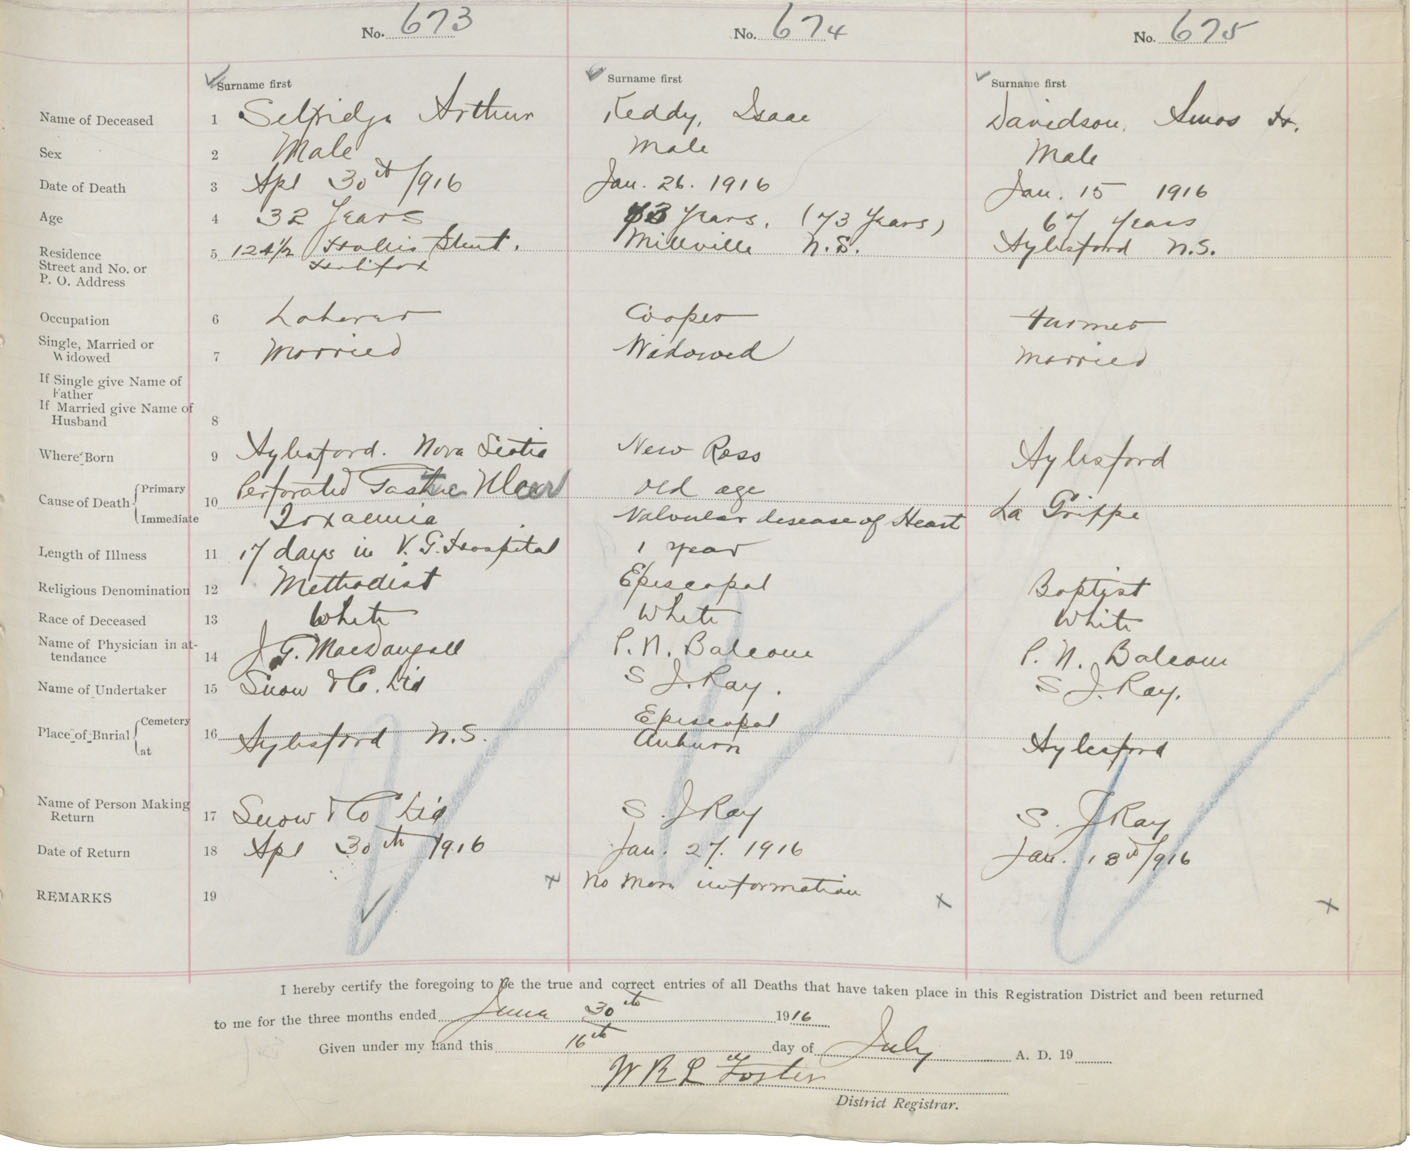 No. 673 No. 674 No. 675
Surname first Surname first Surname first
Name of Deceased 1 Selfridge Arthur Keddy, Isaac Davidson, Amos
Sex 2 Male Male Male
Date of Death 3 Apl 30th 1916 Jan. 26. 1916 Jan. 15 1916
Age 4 32 Years 73 Years, (73 Years) 67 Years
Residence 5 124½ Hollis Street. Millville N.S. Aylesford N.S.
Street and No. or Halifax
P. O. Address
Occupation 6 Laborer Cooper Farmer
Single, Married or
Widowed 7 Married Widowed Married
If Single give Name of
Father
If Married give Name of
Husband 8
Where Born 9 Aylesford. Nova Scotia New Ross Aylesford
Cause of Death Primary 10 Perforated Gastric Ulcer Old age
Immediate Toxaemia Valvular disease of Heart La Grippe
Length of Illness 11 17 days in V. G. Hospital 1 year
Religious Denomination 12 Methodist Episcopal Baptist
Race of Deceased 13 White White White
Name of Physician in at-
tendance 14 J. G. MacDougall P. N. Balcom P. N. Balcom
Name of Undertaker 15 Snow & Co. Ltd S. J. Ray. S. J. Ray.
Place of Burial Cemetery 16 Episcopal
at Aylesford N.S. Auburn Aylesford
Name of Person Making
Return 17 Snow & Co Ltd S. J Ray S. J Ray
Date of Return 18 Apl 30th 1916 Jan. 27. 1916 Jan. 18th 1916
REMARKS 19 x No more information x x
I hereby certify the foregoing to be the true and correct entries of all Deaths that have taken place in this Registration District and been returned
to me for the three months ended June 30th 1916
Given under my hand this 16th day of July A. D. 19
Foster
District Registrar.